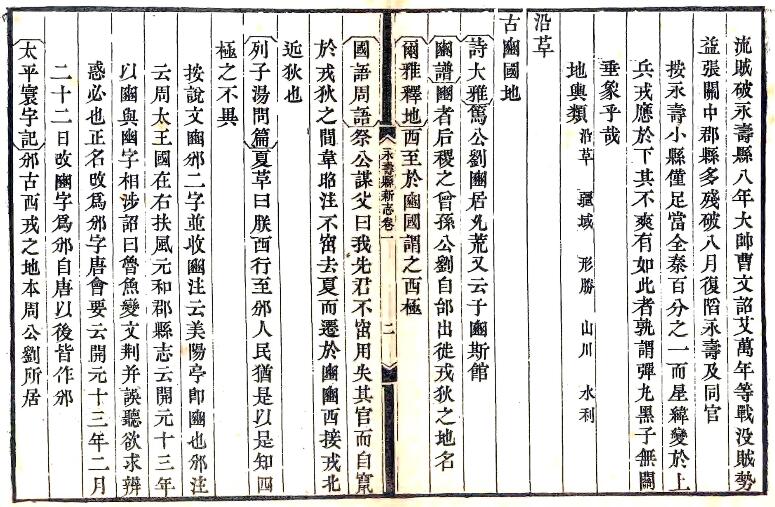 流賊破永壽縣八年大帥曹文詔艾萬年等戰没賊勢
益張關中郡縣多殘破八月復陷永壽及同官
按永壽小縣僅足當全秦百分之一而星緯變於上
兵戎應於下其不爽有如此者孰謂彈丸黑子無關
垂象乎哉
地輿類 沿革 疆域 形勝 山川 水利
沿革
古豳國地
詩大雅篤公劉豳居允荒又云于豳斯館
豳譜豳者后稷之曾孫公劉自邰出徙戎狄之地名
爾雅釋地西至於豳國謂之西極
永壽縣新志卷一 二
國語周語祭公謀父曰我先君不窋用失其官而自竄
於戎狄之間韋昭注不窋去夏而遷於豳豳西接戎北
近狄也
列子湯問篇夏革曰朕西行至邠人民猶是以是知四
極之不異
按說文豳邠二字並收豳注云美陽亭卽豳也邠注
云周太王國在右扶風元和郡縣志云開元十三年
以豳與幽字相涉詔曰魯魚變文荆并誤聽欲求辨
惑必也正名改爲邠字唐會要云開元十三年二月
二十二日改豳字爲邠自唐以後皆作邠
太平寰宇記邠古西戎之地本周公劉所居